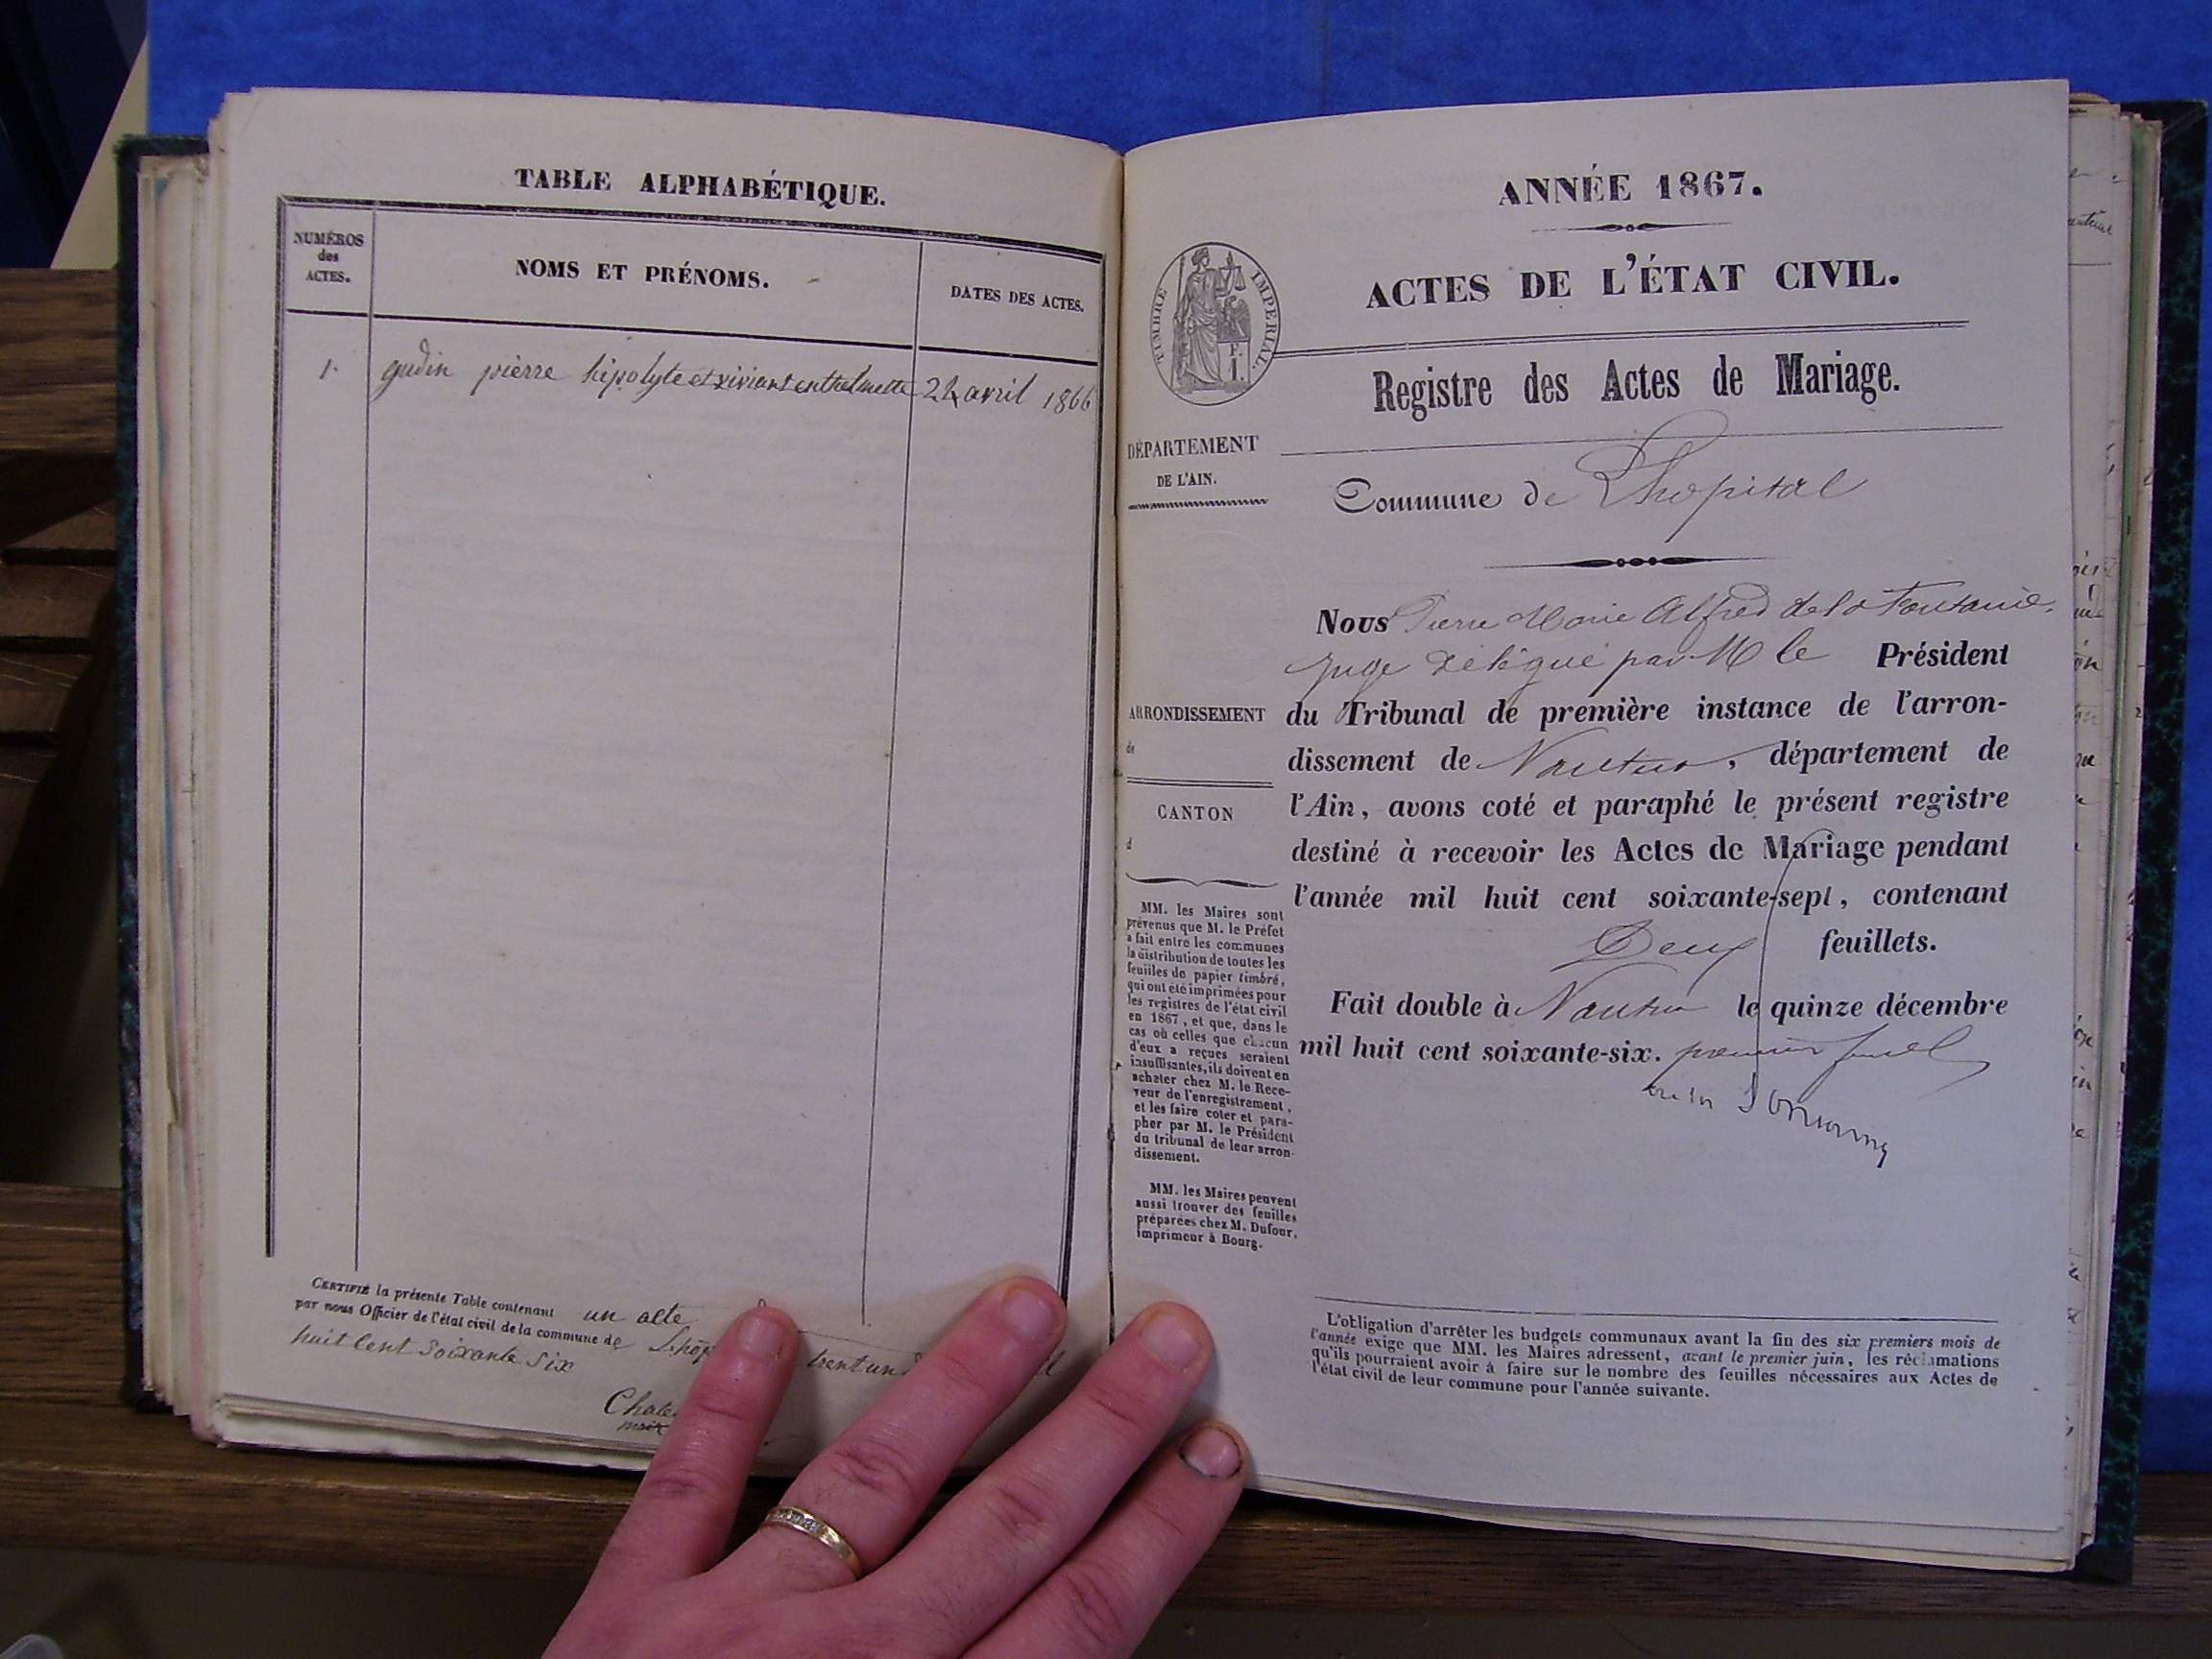 TABLE ALPHABÉTIQUE.
NUMÉROS
des
ACTES.
NOMS ET PRÉNOMS.
DATES DES ACTES.
1. gudin pierre hipolyte et 24 avril 1866
CERTIFIÉ la présente Table contenant un acte
par nous Officier de l'état civil de la commune de trent un
huit cent soixante six
ANNÉE 1867.
ACTES DE L'ÉTAT CIVIL.
TIMBRE IMPÉRIAL.
Registre des Actes de Mariage.
DÉPARTEMENT
DE L'AIN.
Commune de Lhopital
Nous Pierre Marie Alfred
Juge délégué par M le Président
ARRONDISSEMENT
de
du Tribunal de première instance de l'arron-
dissement de Nantua, département de
l'Ain, avons coté et paraphé le présent registre
destiné à recevoir les Actes de Mariage pendant
l'année mil huit cent soixante-sept, contenant
Deux feuillets.
Fait double à Nantua le quinze décembre
mil huit cent soixante-six. premier
CANTON
d
MM. les Maires sont
prévenus que M. le Préfet
a fait entre les communes
la distribution de toutes les
feuilles de papier timbré,
qui ont été imprimées pour
les registres de l'état civil
en 1867, et que, dans le
cas où celles que chacun
d'eux a reçues seraient
insuffisantes, ils doivent en
acheter chez M. le Rece-
veur de l'enregistrement,
et les faire coter et para-
pher par M. le Président
du tribunal de leur arron-
dissement.
MM. les Maires peuvent
aussi trouver des feuilles
préparées chez M. Dufour,
imprimeur à Bourg.
L'obligation d'arrêter les budgets communaux avant la fin des six premiers mois de
l'année exige que MM. les Maires adressent, avant le premier juin, les réclamations
qu'ils pourraient avoir à faire sur le nombre des feuilles nécessaires aux Actes de
l'état civil de leur commune pour l'année suivante.